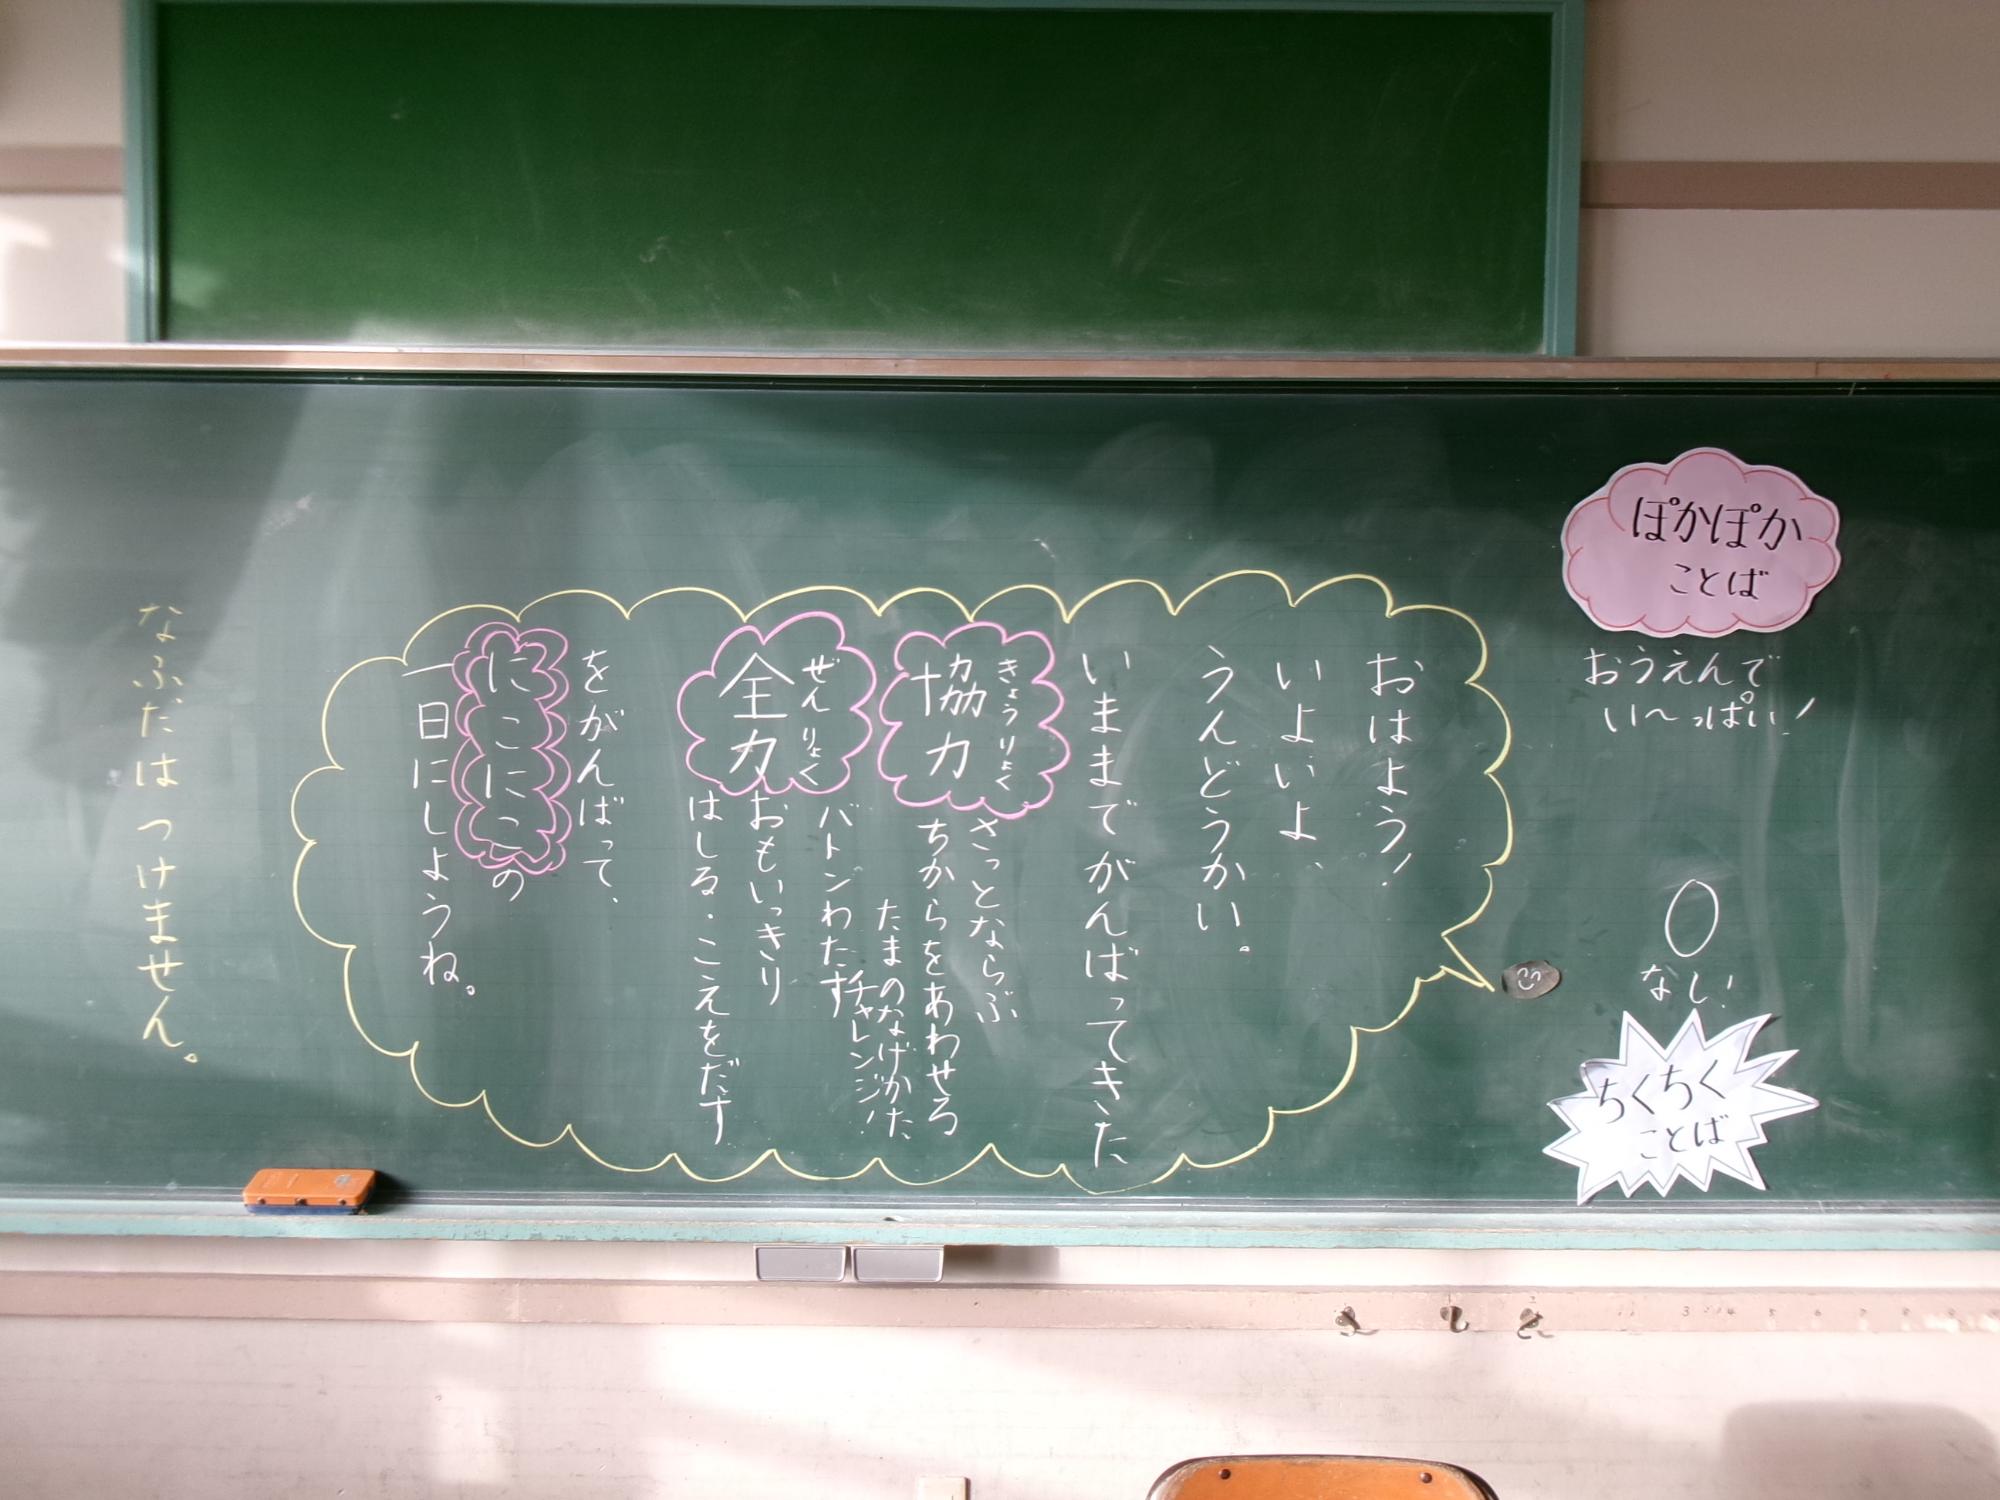 ぽかぽか
ことば
おうえんで
い〜っぱい!
0
ない!
ちくちく
ことば
おはよう!
いよいよ、
うんどうかい。
いままでがんばってきた
きょうりょく
協力
さっとならぶ
ちからをあわせる
たまのなげかた
チャレンジ!
ぜんりょく
全力
バトンわたす
おもいっきり
はしる・こえをだす
をがんばって、
にこにこの
一日にしようね。
なふだは つけません。